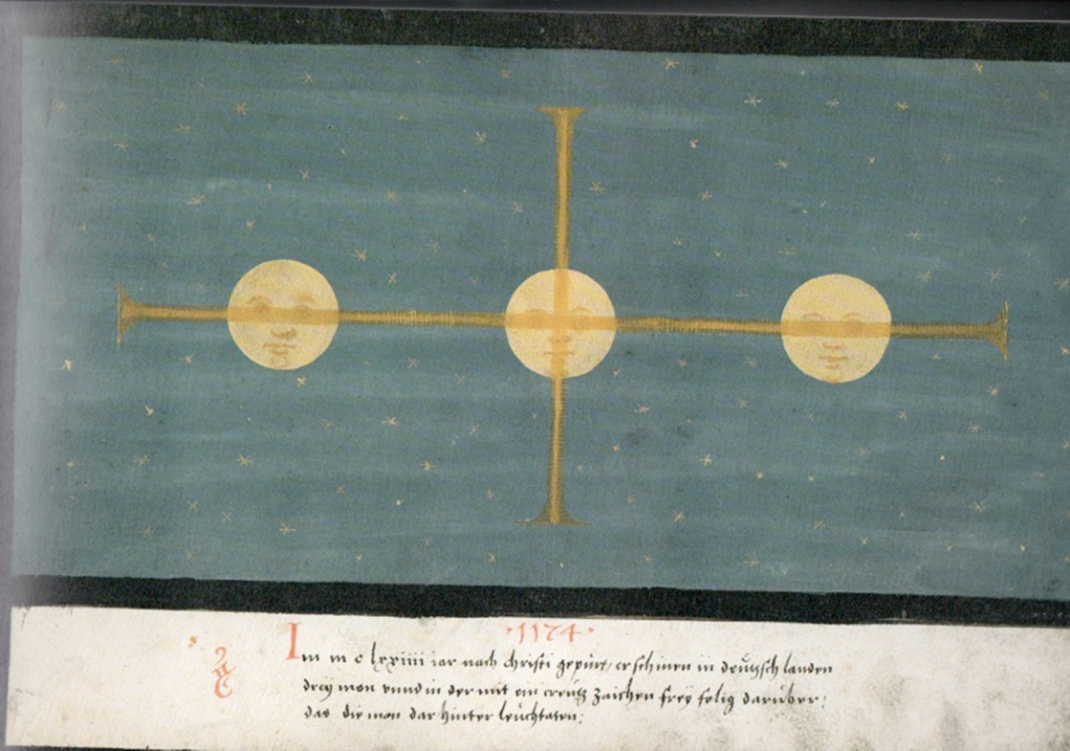 ·1174·
Im m c lxxiiii iar nach christi gepürt, erschinen in deützsch landen
dreÿ mon vnnd in der mit ein creütz zaichen freÿ selig darüber,
das die mon dar hinter leüchtaten;